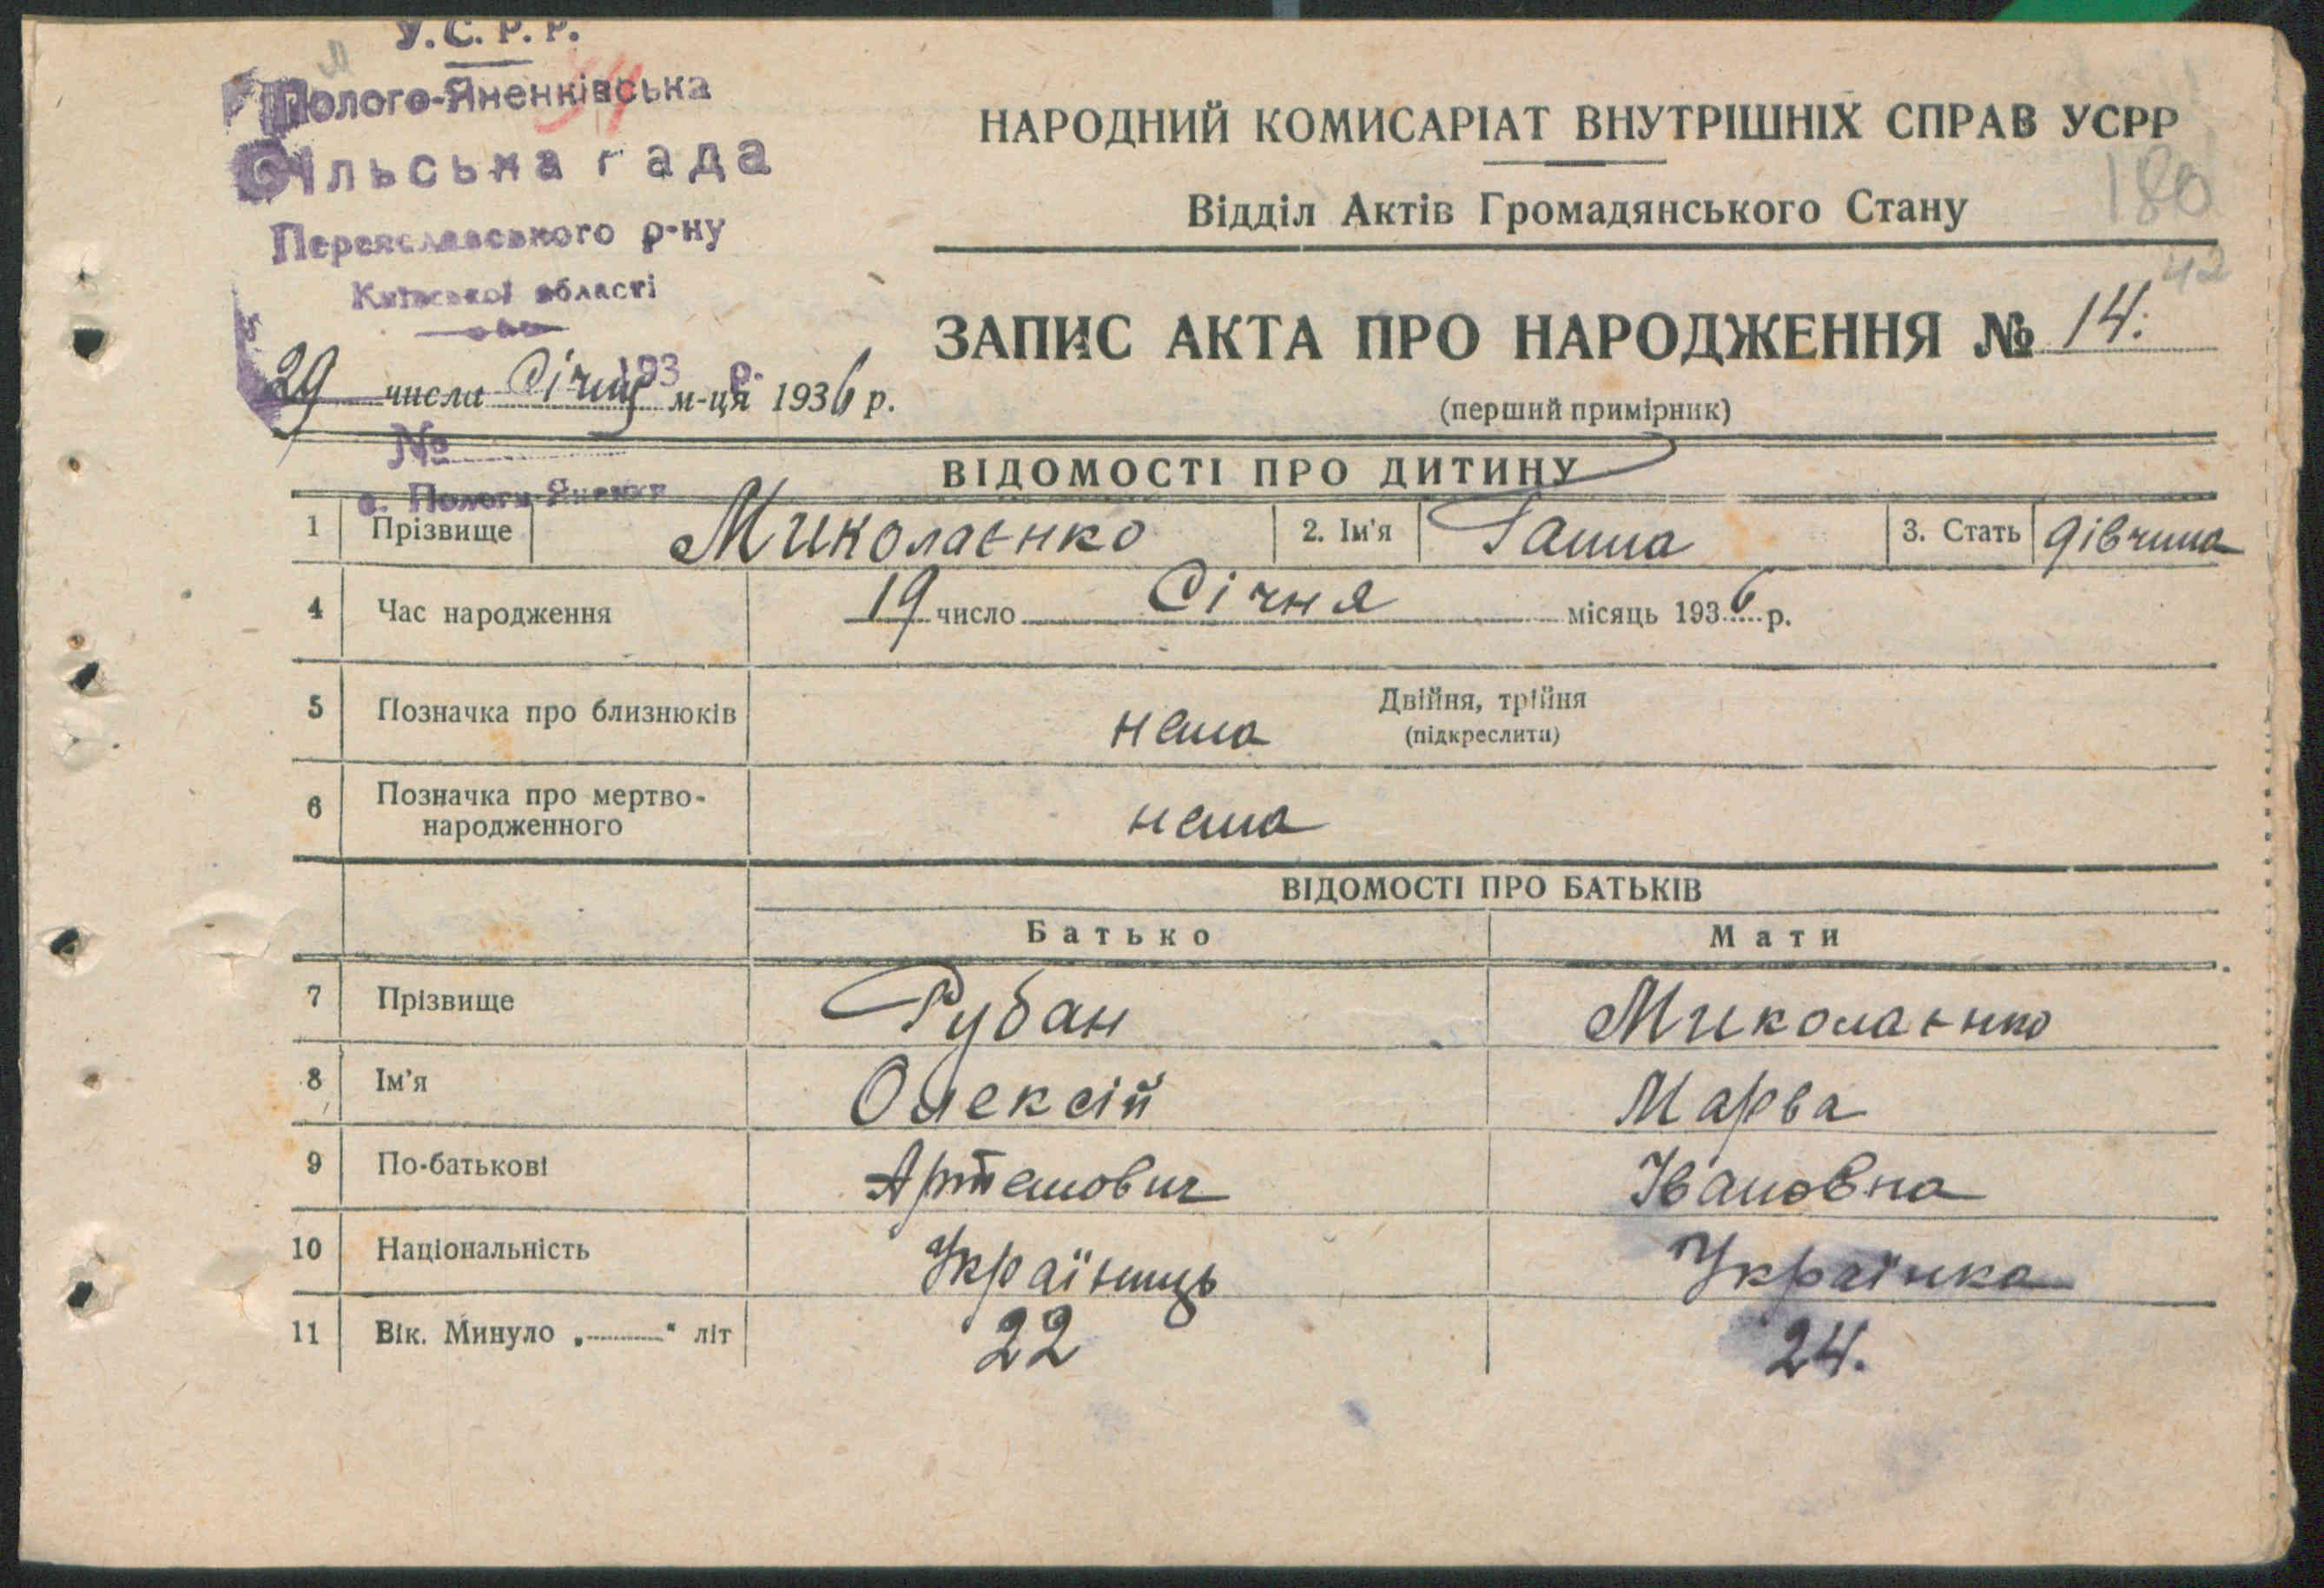 У.С.Р.Р.
Полого-Яненківська
Сільська рада
Переяславського р-ну
Київської області
193 р.
№
с. Пологи-Яненки
29 числа Січня м-ця 1936 р.
НАРОДНИЙ КОМИСАРІАТ ВНУТРІШНІХ СПРАВ УСРР
180
Відділ Актів Громадянського Стану
42
ЗАПИС АКТА ПРО НАРОДЖЕННЯ № 14.
(перший примірник)
ВІДОМОСТІ ПРО ДИТИНУ
1 Прізвище Миколаєнко 2. Ім'я Ганна 3. Стать дівчина
4 Час народження 19 число Січня місяць 1936 р.
5 Позначка про близнюків нема Двійня, трійня
(підкреслити)
6 Позначка про мертво-
народженного нема
ВІДОМОСТІ ПРО БАТЬКІВ
Батько Мати
7 Прізвище Рубан Миколаєнко
8 Ім'я Олексій Марва
9 По-батькові Артемович Івановна
10 Національність Українець Українка
11 Вік. Минуло „ “ літ 22 24.